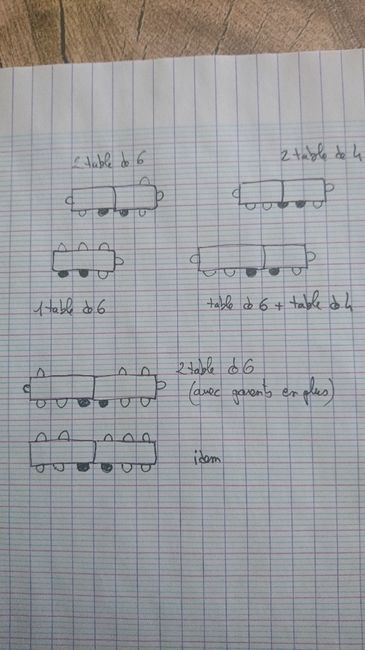 2 table de 6
2 table de 4
1 table de 6
table de 6 + table de 4
2 table de 6
(avec parents en plus)
idem